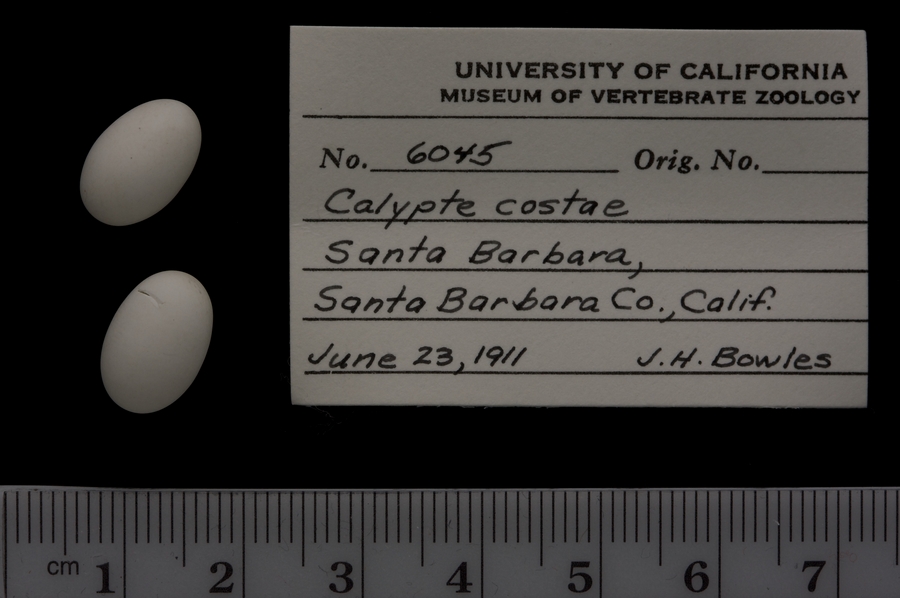 UNIVERSITY OF CALIFORNIA
MUSEUM OF VERTEBRATE ZOOLOGY
No. 6045 Orig. No.
Calypte costae
Santa Barbara,
Santa Barbara Co., Calif.
June 23, 1911 J.H. Bowles
cm 1 2 3 4 5 6 7